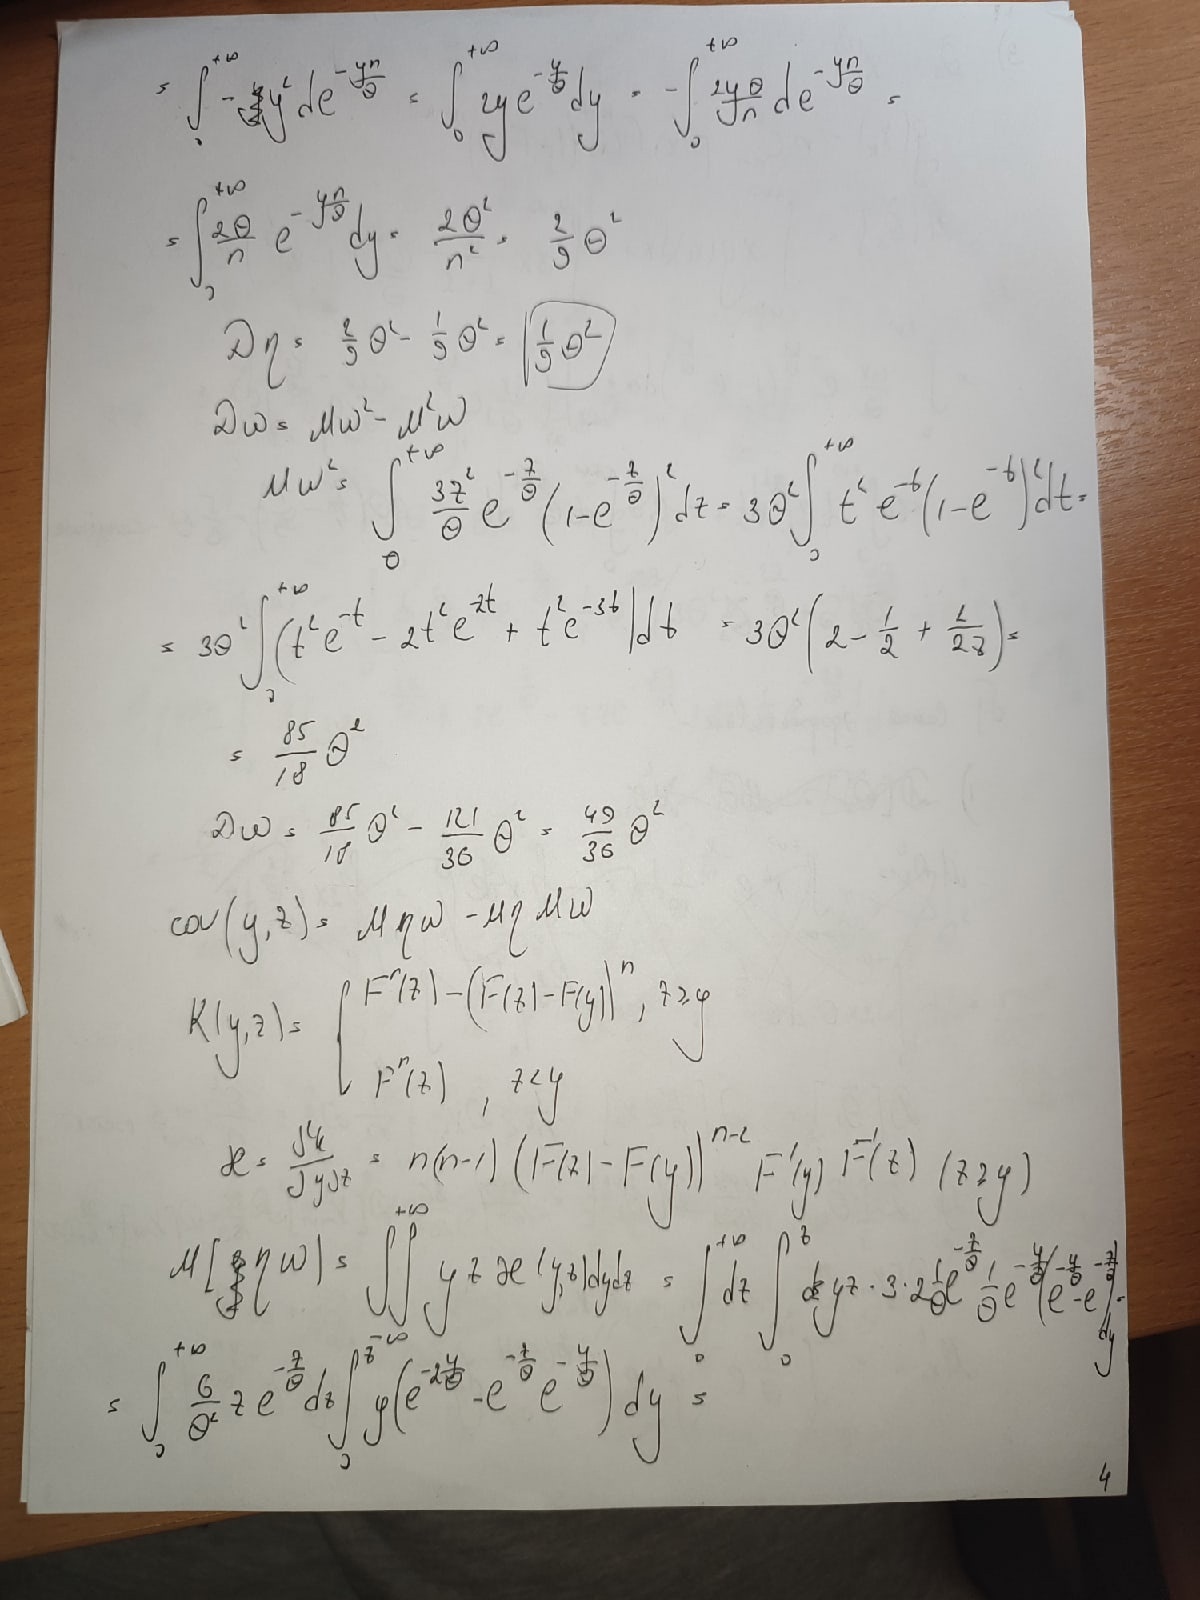 = ∫₀^{+∞} - y² de^{-yn/θ} = ∫₀^{+∞} 2y e^{-y/θ} dy = -∫₀^{+∞} 2yθ/n de^{-yn/θ} =
= ∫₀^{+∞} 2θ/n e^{-yn/θ} dy = 2θ²/n² = 2/9 θ²
Dη = 2/9 θ² - 1/9 θ² = 1/9 θ²
Dω = Mω² - M²ω
Mω² = ∫₀^{+∞} 3z²/θ e^{-z/θ} (1-e^{-z/θ})² dz = 3θ² ∫₀^{+∞} t² e^{-t} (1-e^{-t})² dt =
= 3θ² ∫₀^{+∞} (t² e^{-t} - 2t² e^{-2t} + t² e^{-3t}) dt = 3θ² (2 - 1/2 + 2/27) =
= 85/18 θ²
Dω = 85/18 θ² - 121/36 θ² = 49/36 θ²
cov(y,z) = Mηω - Mη Mω
K(y,z) = { Fⁿ(z) - (F(z)-F(y))ⁿ, z≥y
Fⁿ(z), z<y
æ = ∂²k/∂y∂z = n(n-1) (F(z) - F(y))^{n-2} F'(y) F'(z) (z≥y)
M[ηω] = ∬_{-∞}^{+∞} y z æ(y,z) dydz = ∫₀^{+∞} dz ∫₀^z yz · 3 · 2 1/θ e^{-z/θ} 1/θ e^{-y/θ} (e^{-y/θ} - e^{-z/θ}) dy =
= ∫₀^{+∞} 6/θ² z e^{-z/θ} dz ∫₀^z y(e^{-2y/θ} - e^{-z/θ} e^{-y/θ}) dy =
4